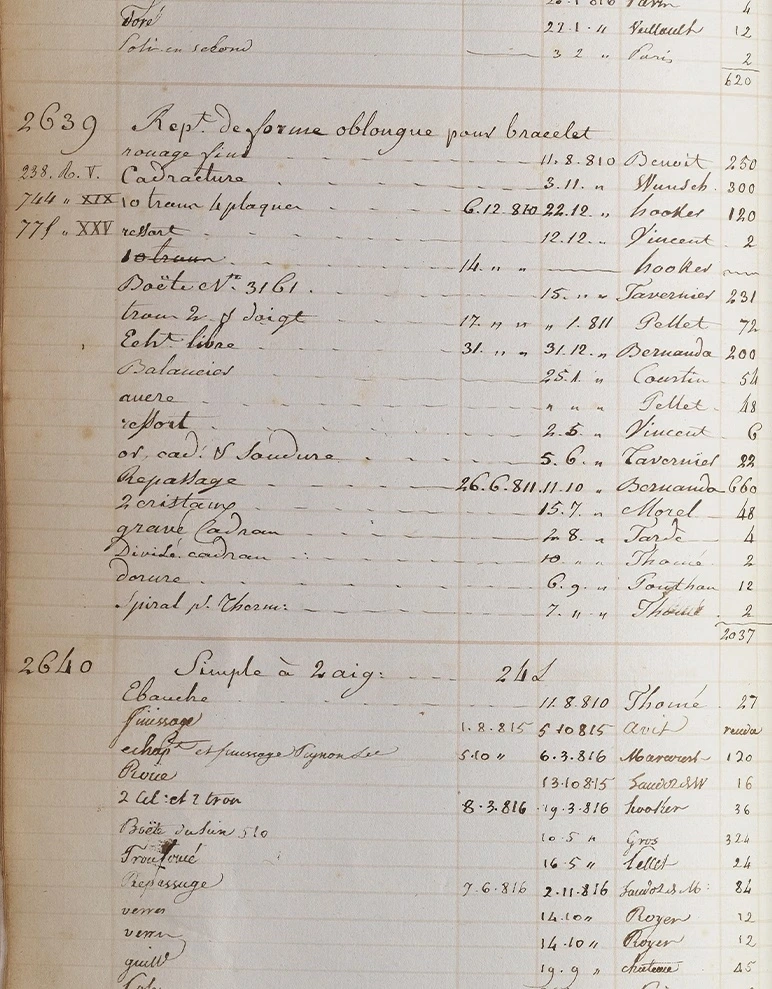 4
Foré 22.1. " Veillault 12
Poli en second 3 2 " Paris 2
620
2639 Rept. de forme oblongue pour bracelet
rouage fini 11.8.810 Benoit 250
238. R. V. Cadracture 3.11. " Wunsch 300
744 " XIX 10 troux 4 plaques 6.12.810 22.12. " hooker 120
775 " XXV ressort 12.12. " Vincent 2
10 troux 14. " " hooker
Boëte No. 3161. 15. " " Tavernier 231
troux 2 f doigt 17. " " " 1.811 Pellet 72
Echt. libre 31. " " 31.12. " Bernauda 200
Balancier 25.1. " Courtin 54
ancre " " " Pellet 48
ressort 2.5. " Vincent 6
or. cad: & Soudure 5.6. " Tavernier 22
Repassage 26.6.811. 11.10 " Bernauda 660
2 cristaux 15.7. " Morel 48
gravé Cadran 2.8. " Tarde 4
Divisé. cadran 10 " " Thomé 2
dorure 6.9. " Ponthon 12
Spiral pr. Therm: 7. " " Thomé 2
2037
2640 Simple à 2 aig: 24 L
Ebauche 11.8.810 Thomé 27
finissage 1.8.815 5 10 815 avit rendu
echapt et finissage Pignon 5.10 " 6.3.816 120
Roue 13.10 815 16
2 Cil: et 2 trou 8.3.816 19.3.816 hooker 36
Boëte 510 10.5 " Gros 324
16.5 " Pellet 24
Repassage 7.6.816 2.11.816 84
verre 14.10 " Royer 12
verre 14.10 " Royer 12
guill 19.9 " chateau 45